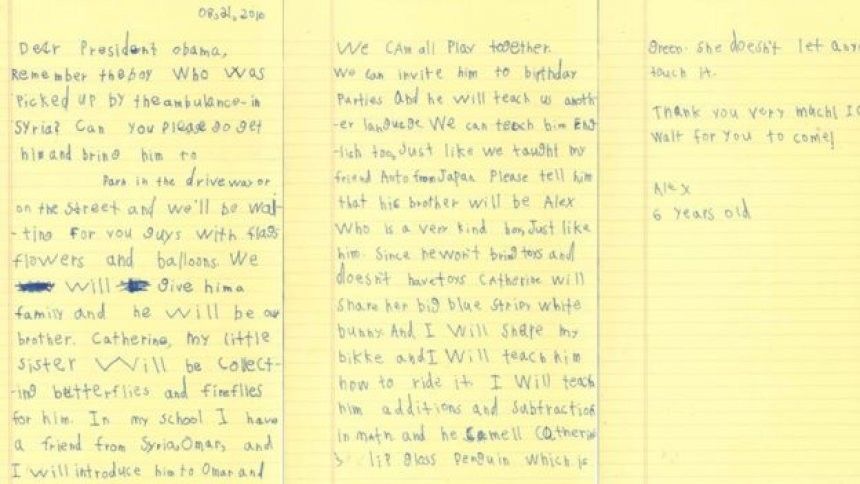 08,21,2010
Dear President obama,
Remember the boy who was
picked up by the ambulance in
Syria? Can you please go get
him and bring him to
Park in the driveway or
on the street and we'll be wai-
-ting for you guys with flags
flowers and balloons. We
will give him a
family and he will be our
brother. Catherine, my little
sister will be collect-
-ing butterflies and fireflies
for him. In my school I have
a friend from Syria, Omar, and
I will introduce him to Omar and
We can all play together.
We can invite him to birthday
parties and he will teach us anoth-
-er language. We can teach him Eng-
-lish too, Just like we taught my
friend Auto from Japan. Please tell him
that his brother will be Alex
who is a very kind boy, Just like
him. Since he won't bring toys and
doesn't have toys Catherine will
share her big blue stripy white
bunny. And I will share my
bikke and I will teach him
how to ride it. I will teach
him additions and subtraction
in math and he smell Catherin
s lip gloss penguin which is
green. She doesn't let any
touch it.
Thank you very mach! I C
wait for you to come!
Alex
6 years old